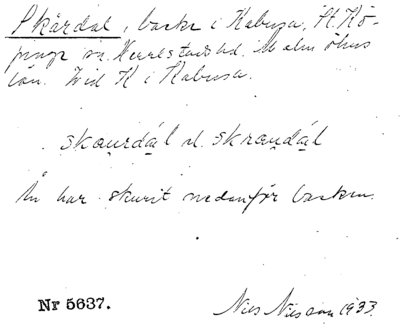 Skärdal, backe i Kabusa, St. Kö-
pinge sn. Herrestads hd. Malmöhus
län. Vid H i Kabusa.
skaurdál el. skraudál
Ån har skurit nedanför backen.
Nr 5637.
Nils Nilsson 1933.